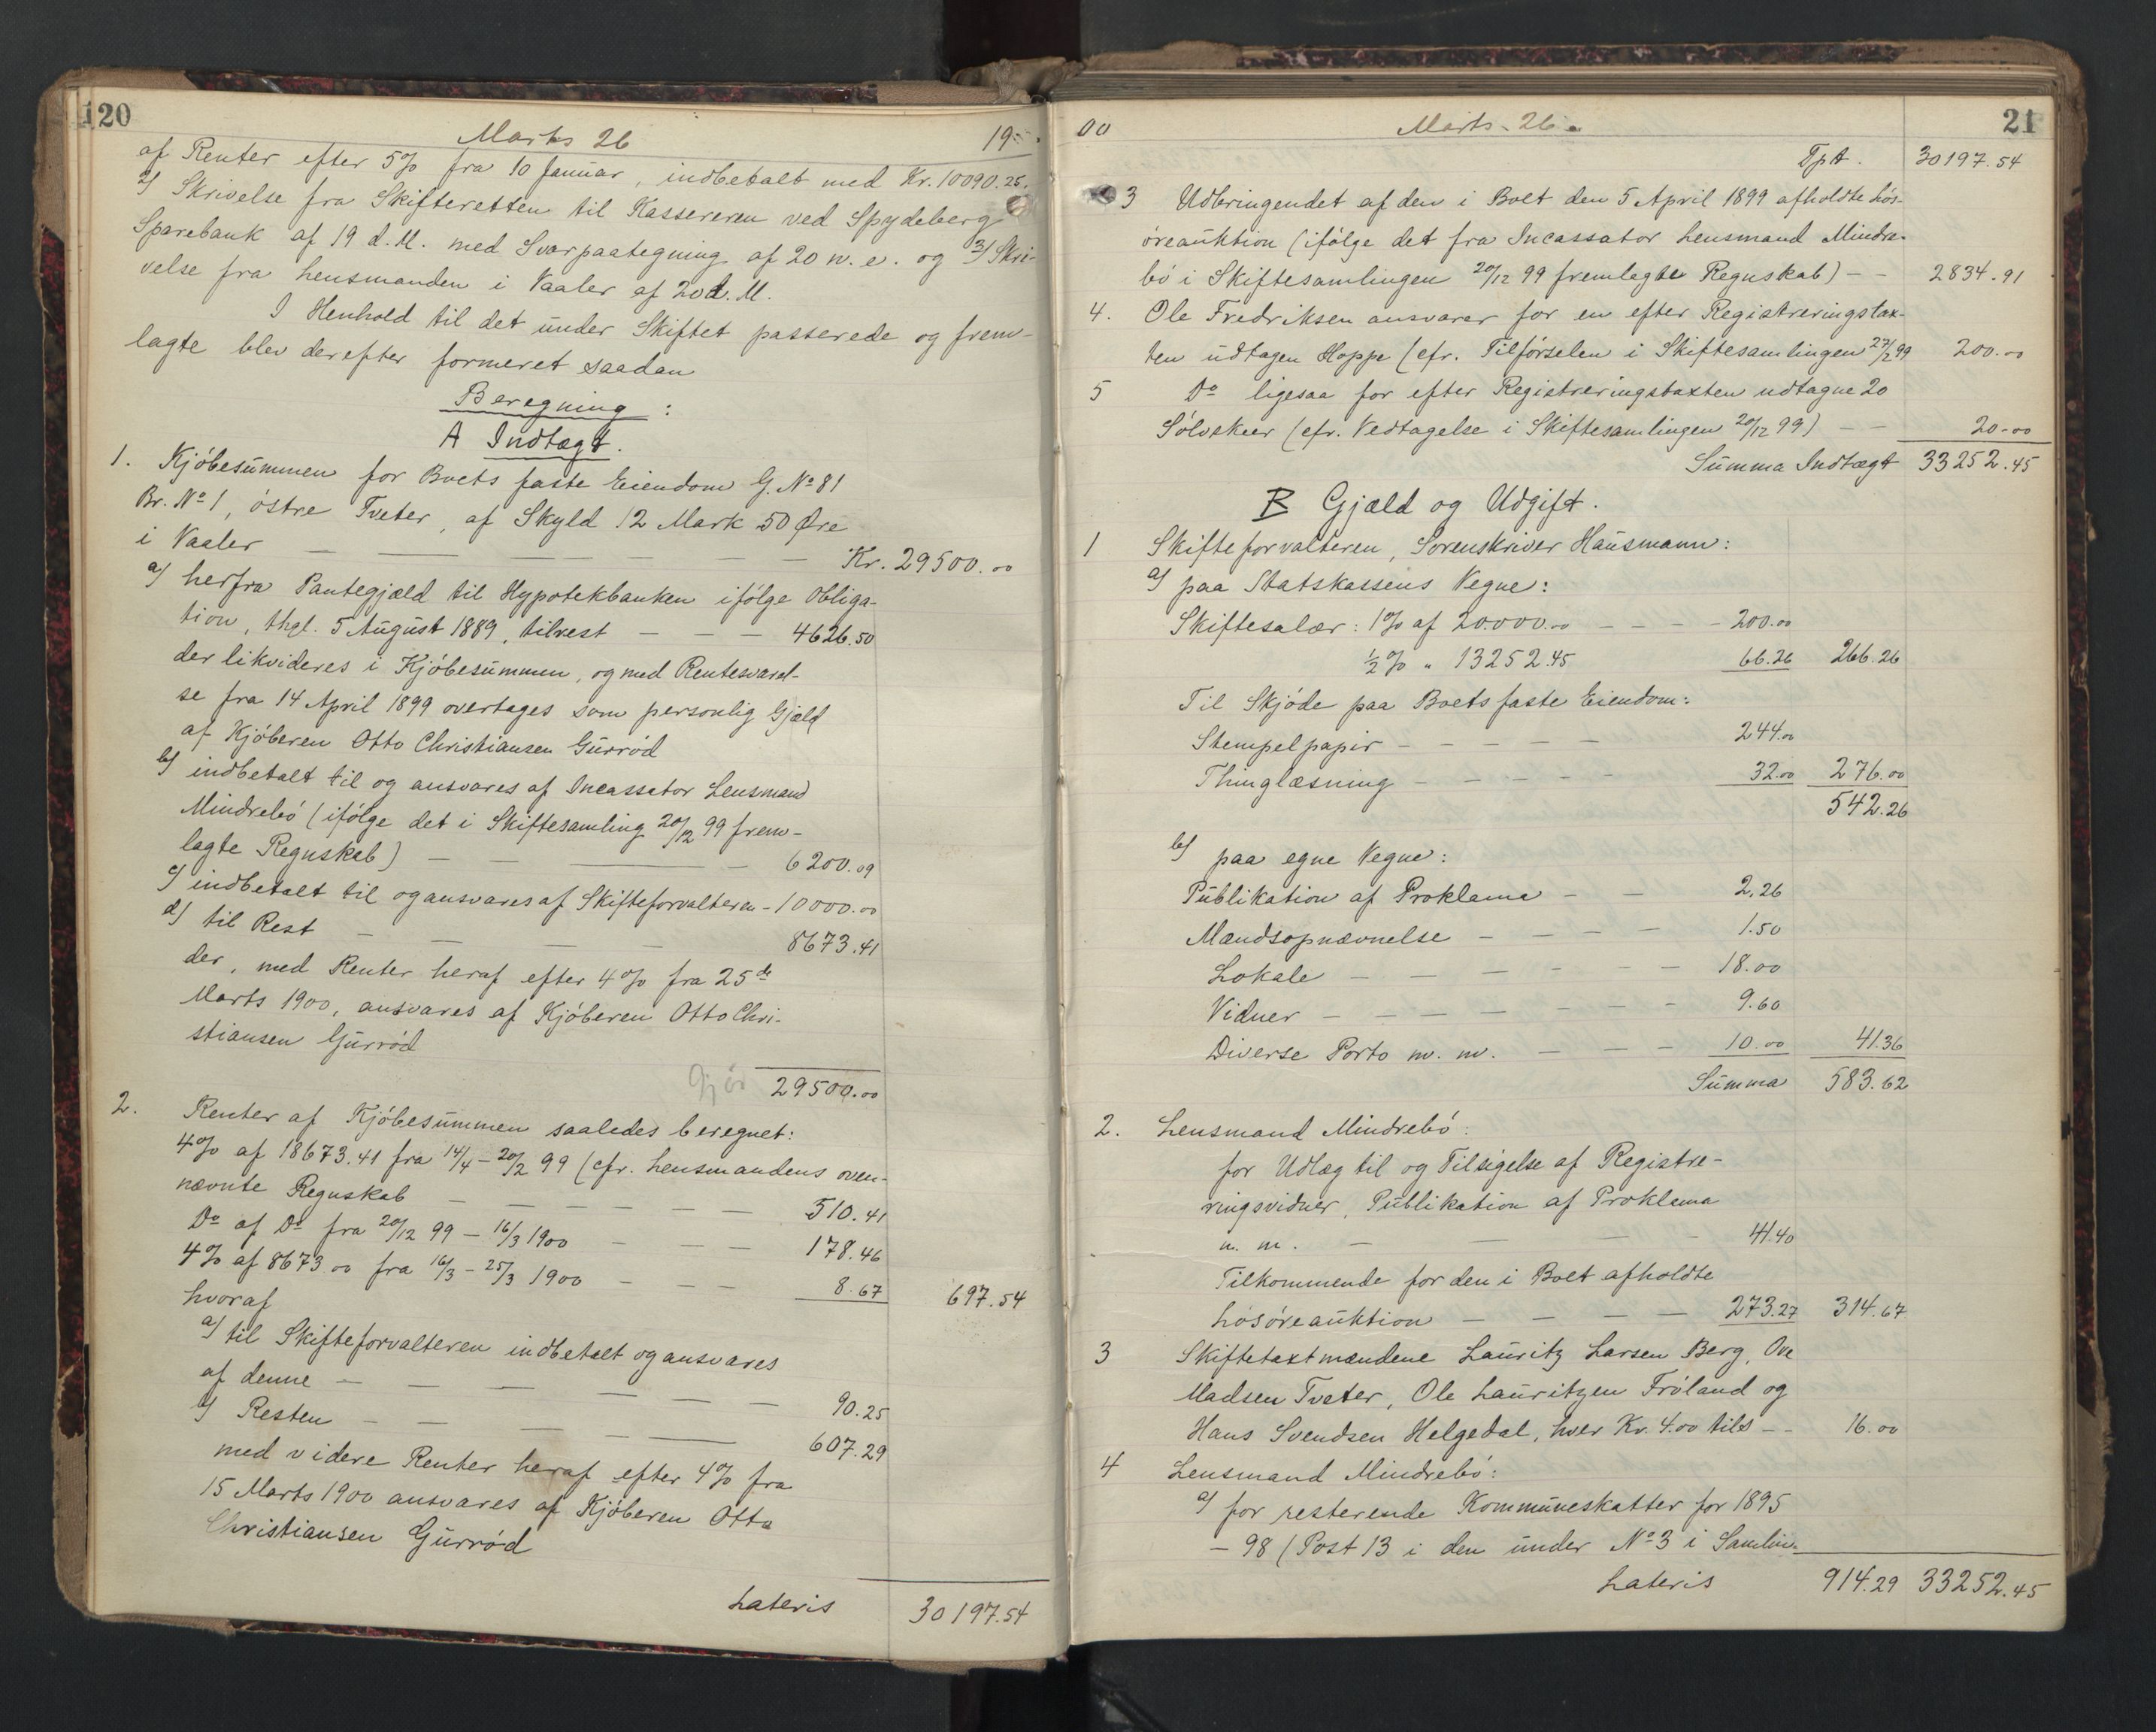 120
Marts 26
19
af Renter efter 5% fra 10 Januar, indbetalt med Kr. 10090.25.
2) Skrivelse fra Skifteretten til Kassereren ved Spydeberg
Sparebank af 19 d. M. med Svarpaategning af 20 n. e. og 3) Skri-
velse fra Lensmanden i Vaaler af 20 d. M.
I Henhold til det under Skiftet passerede og frem-
lagte blev derefter formeret saadan
Beregning:
A Indtægt.
1. Kjöbesummen for Boets faste Eiendom G. No 81
Br. No 1, östre Tveter, af Skyld 12 Mark 50 Øre
i Vaaler — — — — Kr. 29500.00
a) herfra Pantegjæld til Hypotekbanken ifölge Obliga-
tion, thgl. 5 August 1889, tilrest — — — 4626.50
der likvideres i Kjöbesummen, og med Rentesvarel-
se fra 14 April 1899 overtages som personlig Gjæld
af Kjöberen Otto Christiansen Gurröd
b) indbetalt til og ansvares af Incassator Lensmand
Mindrebö (ifölge det i Skiftesamling 20/12 99 frem-
lagte Regnskab) — — — — 6200.09
c) indbetalt til og ansvares af Skifteforvalteren - 10000.00
d) til Rest — — — — 8673.41
der, med Renter heraf efter 4% fra 25de
Marts 1900, ansvares af Kjöberen Otto Chri-
stiansen Gurröd
Gjör 29500.00
2. Renter af Kjöbesummen saaledes beregnet:
4% af 18673.41 fra 14/4 - 20/12 99 (cfr. Lensmandens oven-
nævnte Regnskab — — — — — 510.41
Do af Do fra 20/12 99 - 16/3 1900 — — — 178.46
4% af 8673.00 fra 16/3 - 25/3 1900 — — — 8.67 697.54
hvoraf
a) til Skifteforvalteren indbetalt og ansvares
af denne — — — — — — 90.25
b) Resten — — — — — 607.29
med videre Renter heraf efter 4% fra
15 Marts 1900 ansvares af Kjöberen Otto
Christiansen Gurröd
Lateris 30197.54
00
Marts - 26
21
Tpt. 30197.54
3 Udbringendet af den i Boet den 5 April 1899 afholdte Lös-
öreauktion (ifölge det fra Incassator Lensmand Mindre-
bö i Skiftesamlingen 20/12 99 fremlagte Regnskab) — — 2834.91
4. Ole Fredriksen ansvarer for en efter Registreringstax-
ten udtagen Hoppe (cfr. Tilförselen i Skiftesamlingen 27/2 99 200.00
5 Do ligesaa for efter Registreringstaxten udtagne 20
Sölvskeer (cfr. Vedtagelse i Skiftesamlingen 20/12 99) — — 20.00
Summa Indtægt 33252.45
B Gjæld og Udgift.
1 Skifteforvalteren, Sorenskriver Hausmann:
a) paa Statskassens Vegne:
Skiftesalær: 1% af 20.000.00 — — — — 200.00
1/2% " 13252.45 66.26 266.26
Til Skjöde paa Boets faste Eiendom:
Stempelpapir — — — — — 244.00
Thinglæsning — — — — — 32.00 276.00
542.26
b) paa egne Vegne:
Publikation af Proklama — — 2.26
Mændsopnævnelse — — — — 1.50
Lokale — — — — — — 18.00
Vidner — — — — — — 9.60
Diverse Porto m. m. — — — 10.00 41.36
Summa 583.62
2. Lensmand Mindrebö:
for Udlæg til og Tilsigelse af Registre-
ringsvidner, Publikation af Proklama
m. m. — — — — 41.40
Tilkommende for den i Boet afholdte
Lösöreauktion — — — — 273.27 314.67
3 Skiftetaxtmændene Lauritz Larsen Berg, Ove
Madsen Tveter, Ole Lauritzen Fröland og
Hans Svendsen Helgedal, hver Kr. 4.00 tils — — 16.00
4 Lensmand Mindrebö:
a) for resterende Kommuneskatter for 1895
- 98 (Post 13 i den under No 3 i Samlin-
Lateris 914.29 33252.45